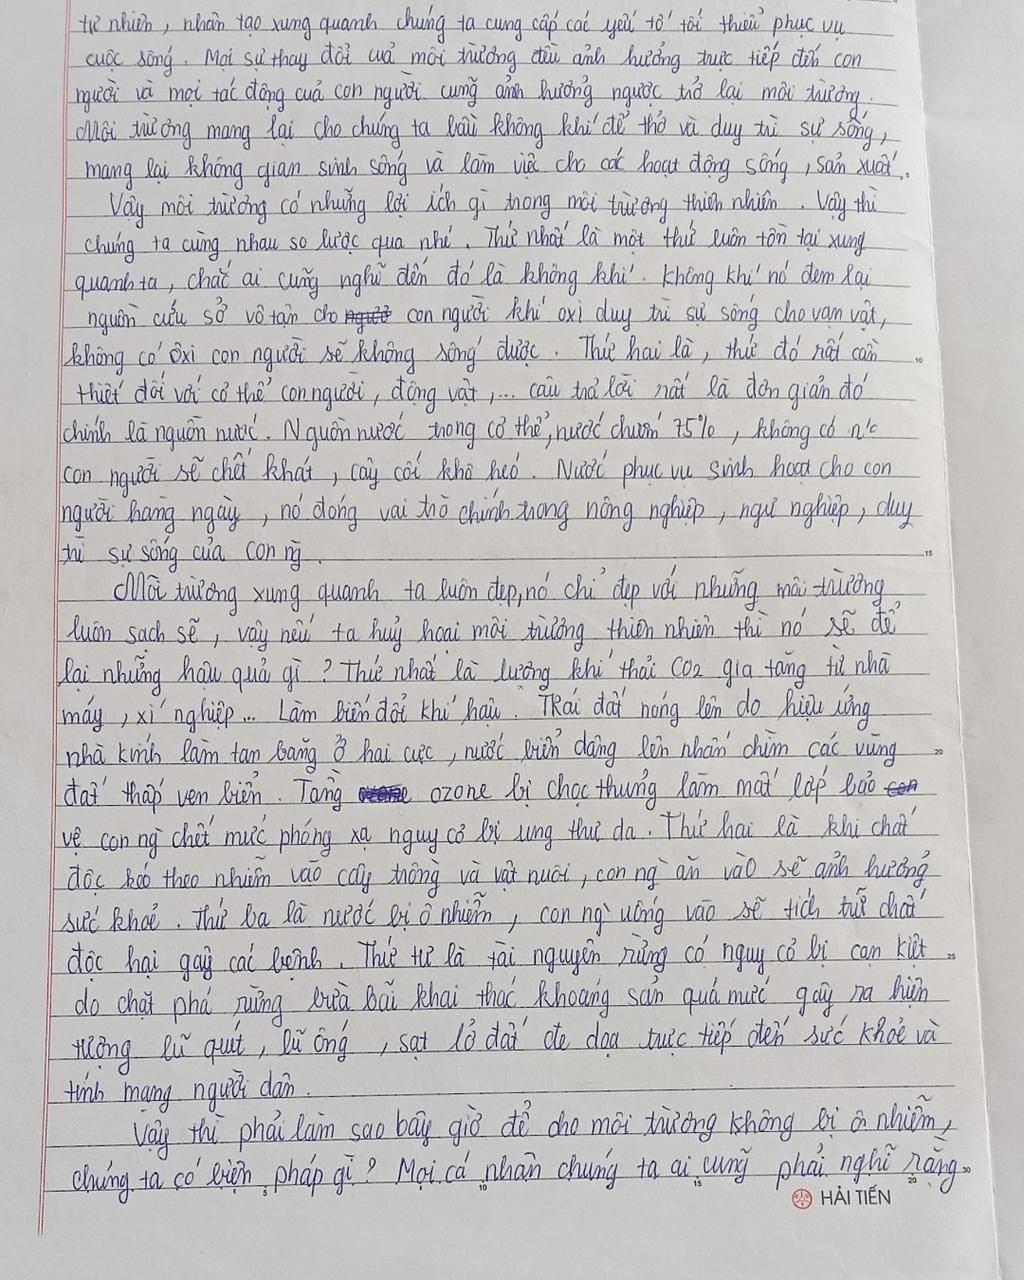 tự nhiên, nhân tạo xung quanh chúng ta cung cấp các yếu tố tối thiểu phục vụ
cuộc sống. Mọi sự thay đổi cuả môi trường đều ảnh hưởng trực tiếp đến con
người và mọi tác động cuả con người cũng ảnh hưởng ngược trở lại môi trường.
Môi trường mang lại cho chúng ta bầu không khí để thở và duy trì sự sống,
mang lại không gian sinh sống và làm việc cho các hoạt động sống, sản xuất..
Vậy môi trường có những lợi ích gì trong môi trường thiên nhiên. Vậy thì
chúng ta cùng nhau sơ lược qua nhé. Thứ nhất là một thứ luôn tồn tại xung
quanh ta, chắc ai cũng nghĩ đến đó là không khí. Không khí nó đem lại
nguồn cứu sở vô tận cho con người khí oxi duy trì sự sống cho vạn vật,
không có ôxi con người sẽ không sống được. Thứ hai là, thứ đó rất cần
thiết đối với cơ thể con người, động vật,... câu trả lời rất là đơn giản đó
chính là nguồn nước. Nguồn nước trong cơ thể, nước chiếm 75%, không có n'c
con người sẽ chết khát, cây cối khô héo. Nước phục vụ sinh hoạt cho con
người hàng ngày, nó đóng vai trò chính trong nông nghiệp, ngư nghiệp, duy
trì sự sống của con ng̀.
Môi trường xung quanh ta luôn đẹp, nó chỉ đẹp với những môi trường
luôn sạch sẽ, vậy nếu ta huỷ hoại môi trường thiên nhiên thì nó sẽ để
lại những hậu quả gì? Thứ nhất là lượng khí thải CO2 gia tăng từ nhà
máy, xí nghiệp... Làm biến đổi khí hậu. Trái đất nóng lên do hiệu ứng
nhà kính làm tan băng ở hai cực, nước biển dâng lên nhấn chìm các vùng
đất thấp ven biển. Tầng ozone bị chọc thủng làm mất lớp bảo
vệ con ng̀ chết mức phóng xạ nguy cơ bị ung thư da. Thứ hai là khi chất
độc kéo theo nhiễm vào cây trồng và vật nuôi, con ng̀ ăn vào sẽ ảnh hưởng
sức khoẻ. Thứ ba là nước bị ô nhiễm, con ng̀ uống vào sẽ tích trữ chất
độc hại gây các bệnh. Thứ tư là tài nguyên rừng có nguy cơ bị cạn kiệt
do chặt phá rừng bừa bãi khai thác khoáng sản quá mức gây ra hiện
tượng lũ quét, lũ ống, sạt lở đất đe dọa trực tiếp đến sức khoẻ và
tính mạng người dân.
Vậy thì phải làm sao bây giờ để cho môi trường không bị ô nhiễm,
chúng ta có biện pháp gì? Mọi cá nhân chúng ta ai cũng phải nghĩ rằng
HẢI TIẾN